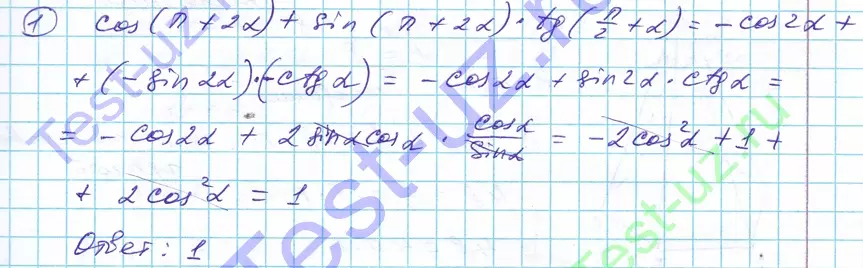 ① cos(π + 2α) + sin(π + 2α) · tg(π/2 + α) = - cos2α +
+ (- sin 2α) · (- ctg α) = - cos2α + sin2α · ctg α =
= - cos2α + 2 sinα cosα · cosα/sinα = - 2cos²α + 1 +
+ 2 cos²α = 1
Ответ: 1
Test-uz.ru
Test-uz.ru
Test-uz.ru